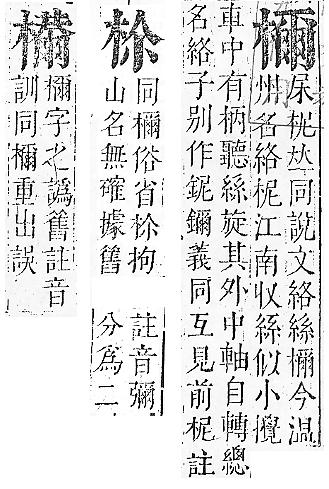 檷
杘柅𠀤同說文絡絲檷今溫
州名絡柅江南收絲似小攪
車中有柄聽絲旋其外中軸自轉總
名絡子別作鈮鑈義同互見前柅註
同檷俗省拘
山名無確據舊
註音彌
分爲二
檷字之譌舊註音
訓同檷重出誤